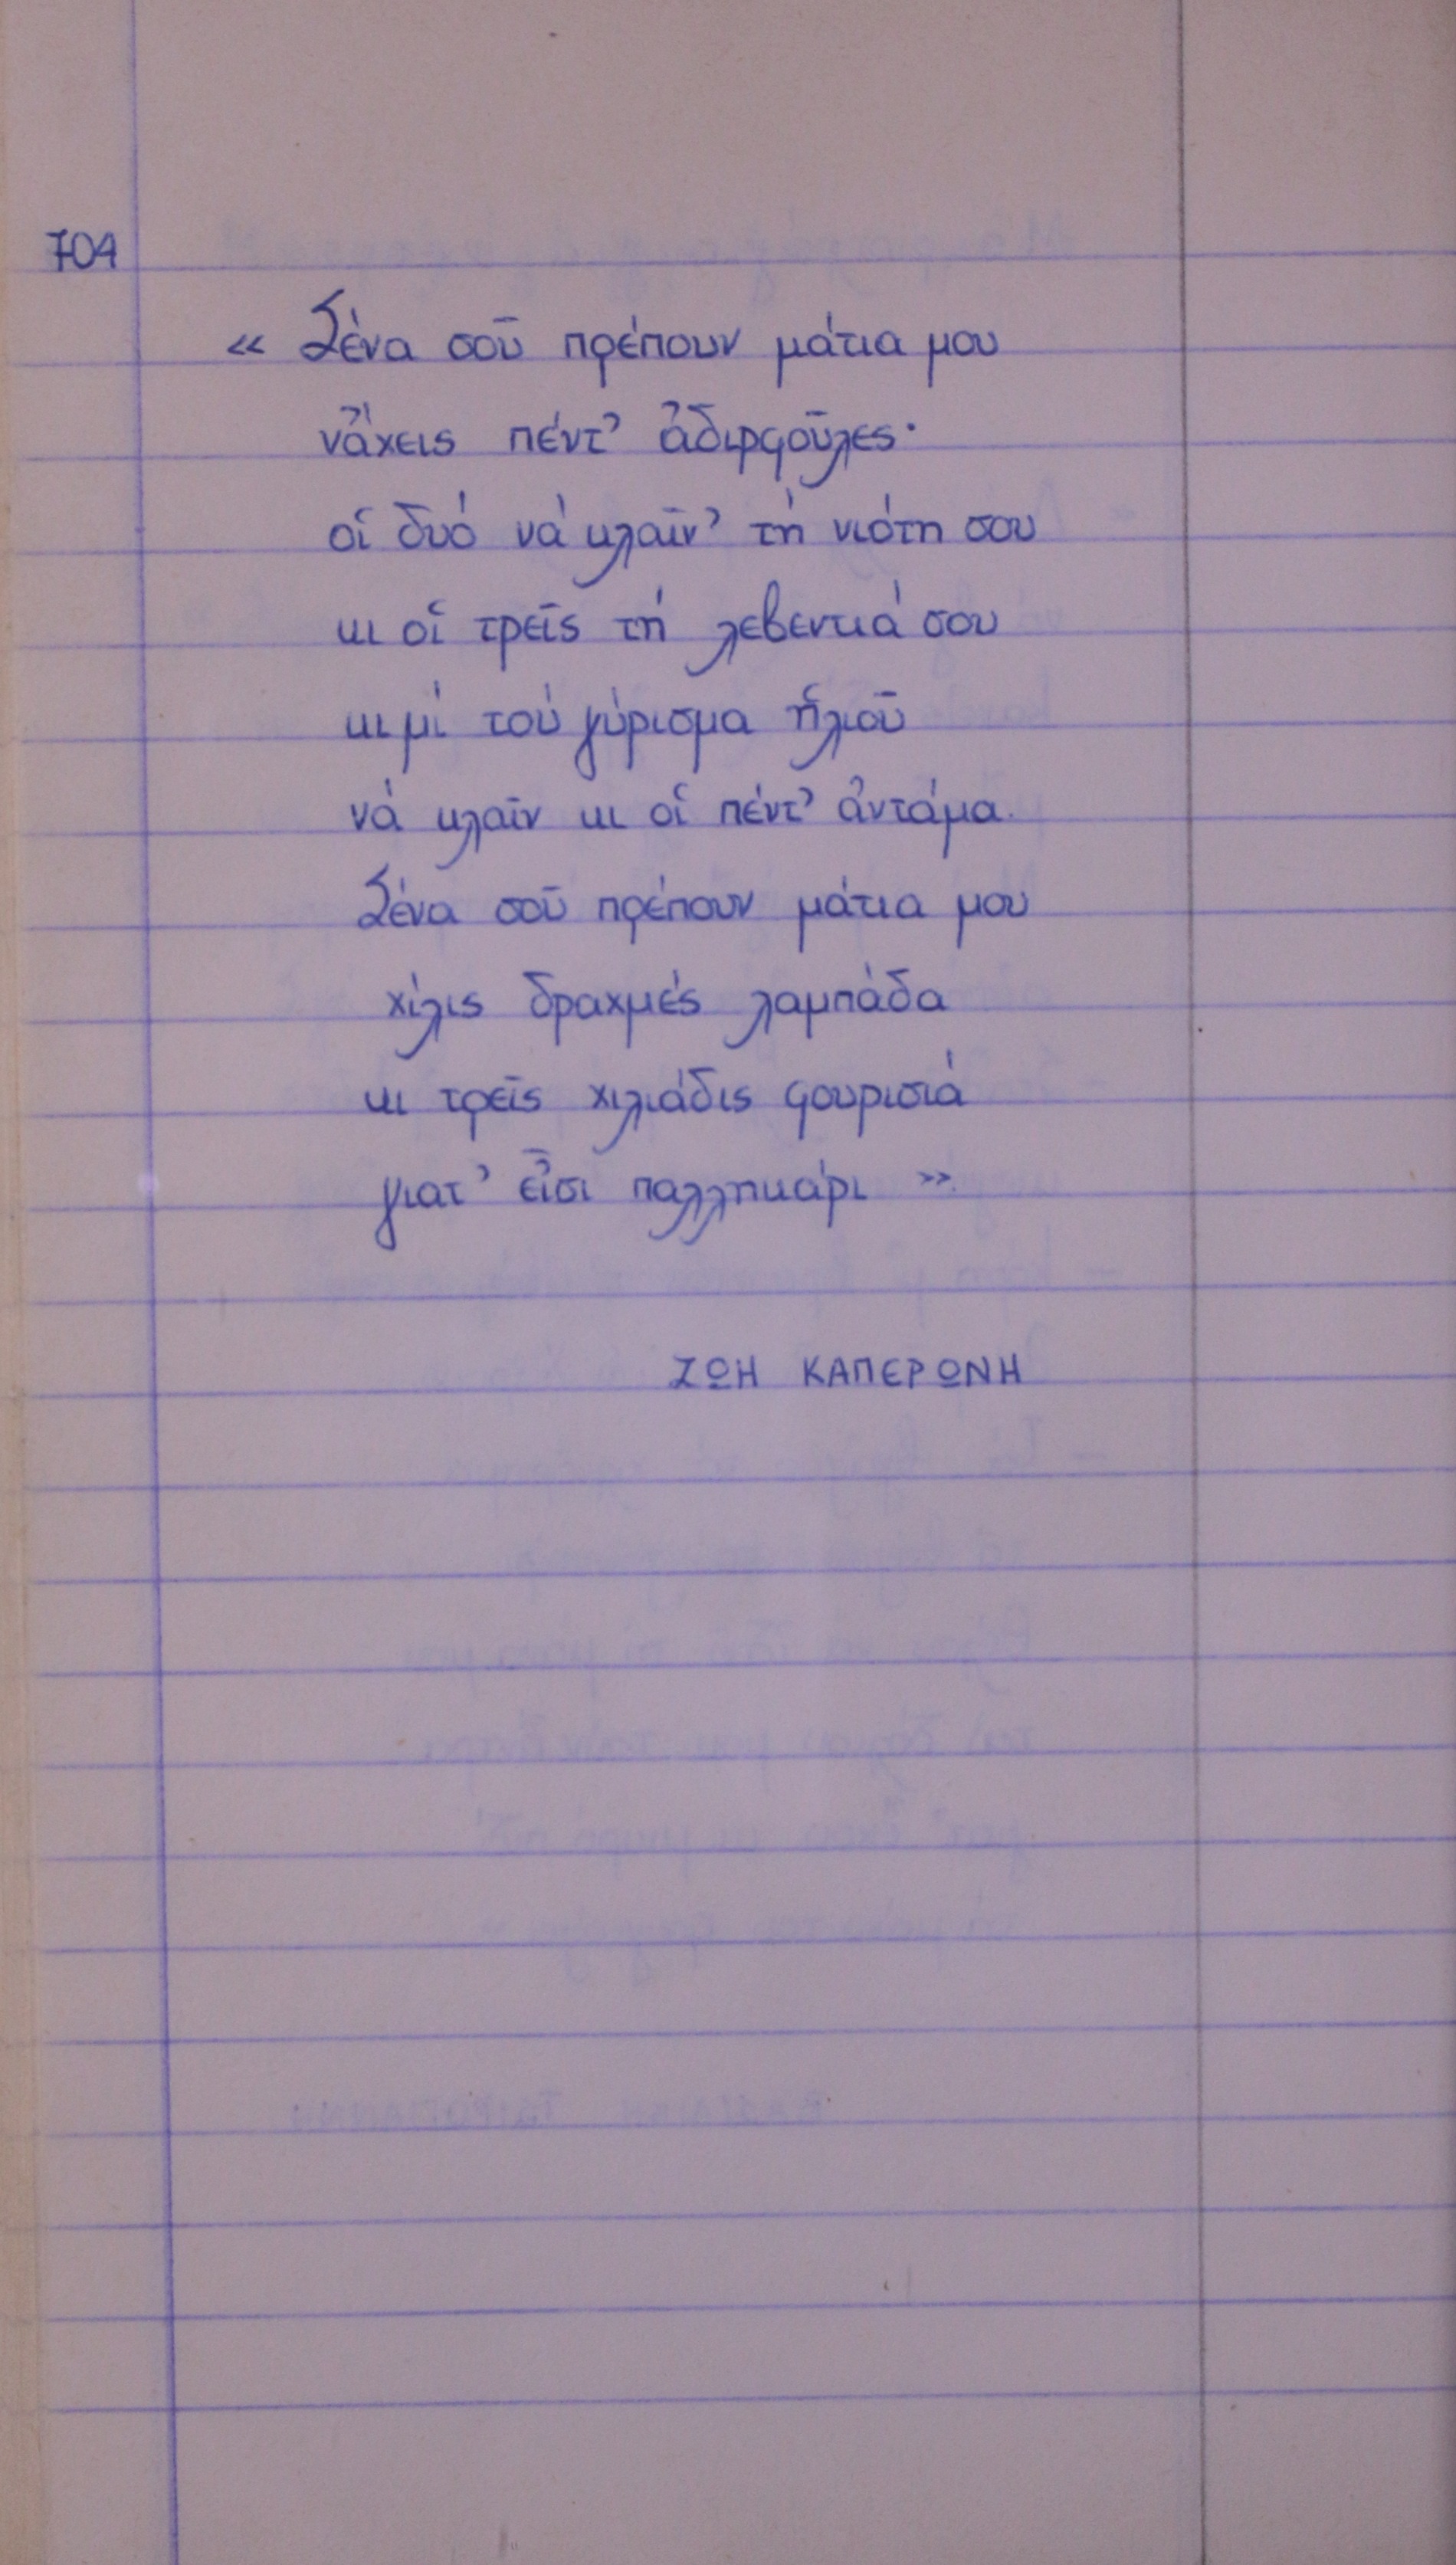 704
« Σένα σοῦ πρέπουν μάτια μου
νἄχεις πέντ' ἀδιρφοῦλες·
οἱ δυό νά κλαῖν' τή νιότη σου
κι οἱ τρεῖς τή λεβεντιά σου
κι μί τού γύρισμα ἡλιοῦ
νά κλαῖν κι οἱ πέντ' ἀντάμα.
Σένα σοῦ πρέπουν μάτια μου
χίλις δραχμές λαμπάδα
κι τρεῖς χιλιάδις φουρισιά
γιατ' εἶσι παλληκάρι ».
ΖΩΗ ΚΑΠΕΡΩΝΗ